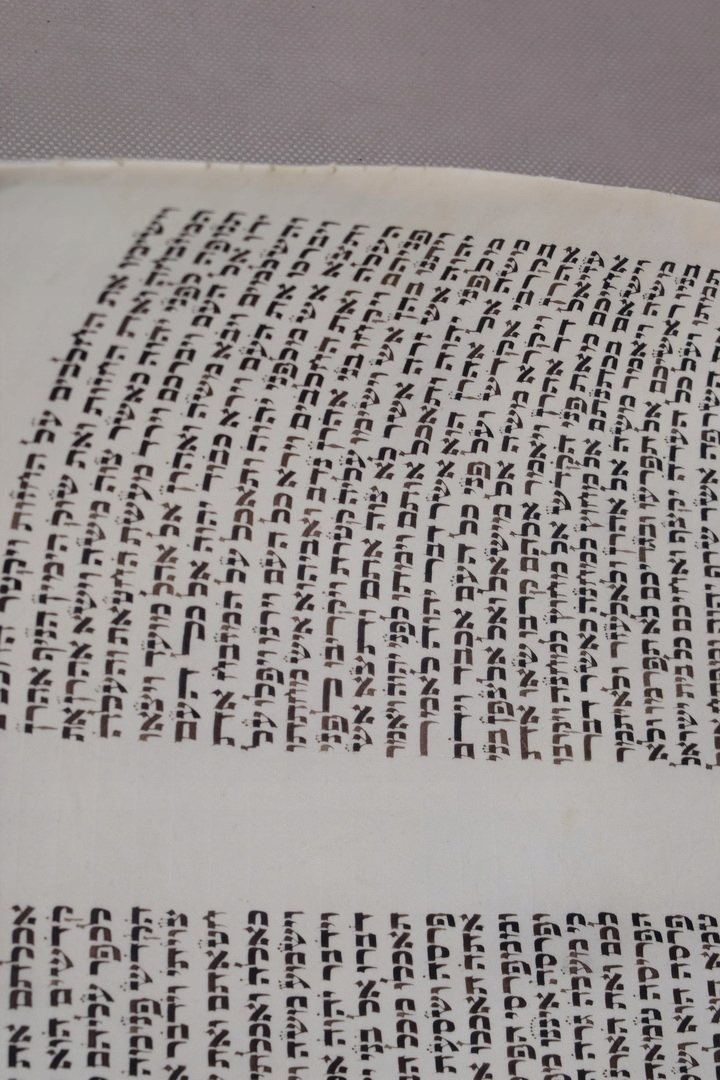 וישימו את החלבים על החזות ויקטר החלבים
המזבחה ואת החזות ואת שוק הימין הניף אהרן
תנופה לפני יהוה כאשר צוה משה וישא אהרן את
ידו אל העם ויברכם וירד מעשת החטאת והעלה
והשלמים ויבא משה ואהרן אל אהל מועד ויצאו
ויברכו את העם וירא כבוד יהוה אל כל העם
ותצא אש מלפני יהוה ותאכל על המזבח את
העלה ואת החלבים וירא כל העם וירנו ויפלו על
פניהם ויקחו בני אהרן נדב ואביהוא איש מחתתו
ויתנו בהן אש וישימו עליה קטרת ויקריבו לפני
יהוה אש זרה אשר לא צוה אתם ותצא אש
מלפני יהוה ותאכל אותם וימתו לפני יהוה ויאמר
משה אל אהרן הוא אשר דבר יהוה לאמר
בקרבי אקדש ועל פני כל העם אכבד וידם
אהרן ויקרא משה אל מישאל ואל אלצפן בני
עזיאל דד אהרן ויאמר אלהם קרבו שאו את
אחיכם מאת פני הקדש אל מחוץ למחנה ויקרבו
וישאם בכתנתם אל מחוץ למחנה כאשר דבר
משה ויאמר משה אל אהרן ולאלעזר ולאיתמר
בניו ראשיכם אל תפרעו ובגדיכם לא תפרמו ולא
תמתו ועל כל העדה יקצף ואחיכם כל בית ישראל
השרפה אשר שרף יהוה ומפתח אהל
אכלתם את
קדשים הוא
לכפר עליהם
הקדש פנימה
צויתי וידבר א
חטאתם ואת
כאלה ואכלתי
וישמע משה
וידבר יהוה א
דברו אל בני י
תאכלו מכל ה
פרסה ושסעת
אתה תאכלו א
וממפרסי הפר
ופרסה איננו מ
כי מעלה גרה
לכם ואת הארנ
הפרסה טמאה
פרסה הוא וש
טמא הוא ל